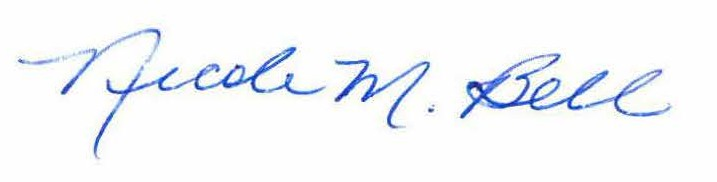 Nicole M. Bell